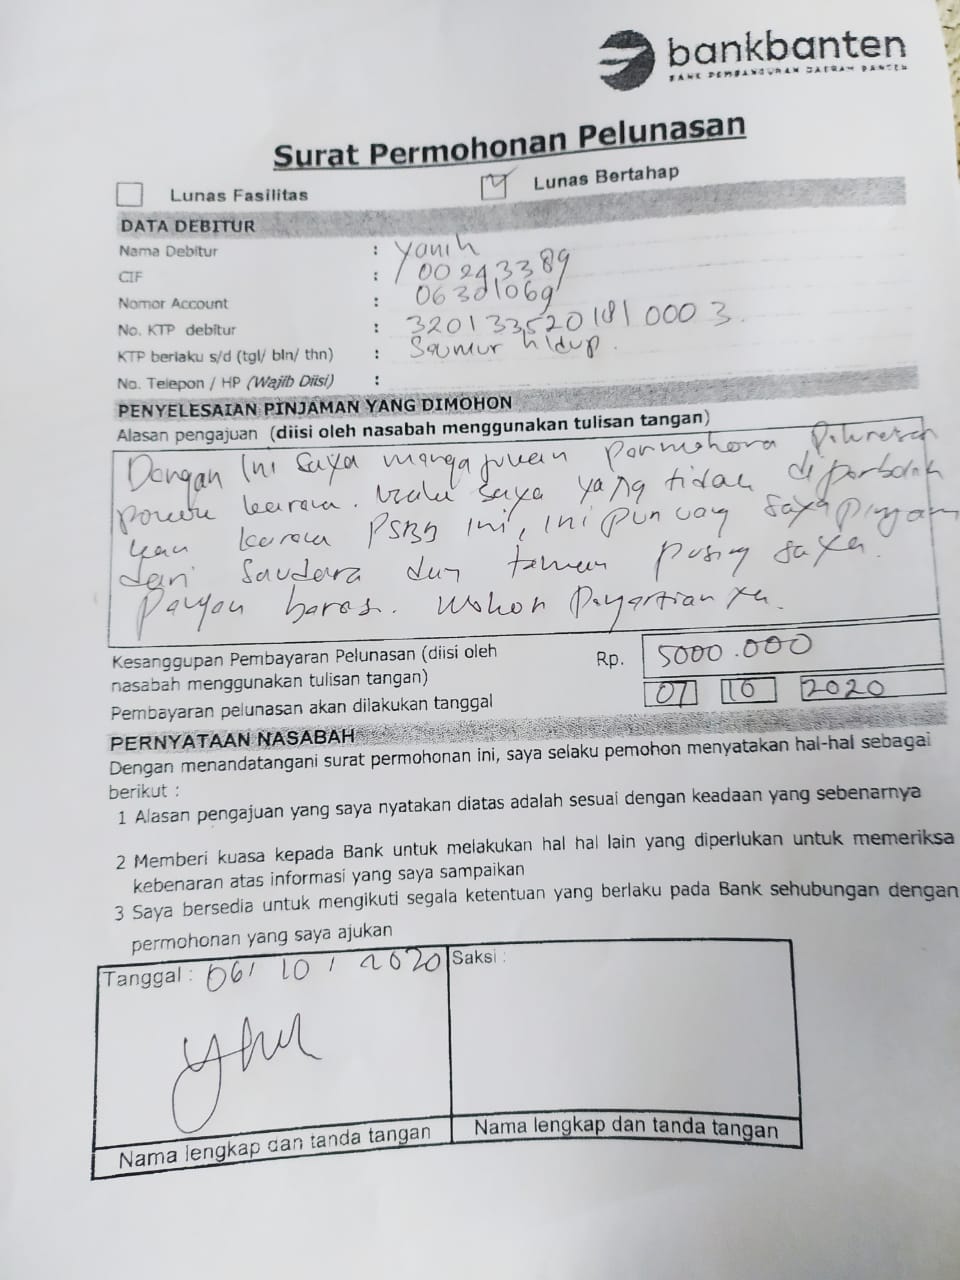 bankbanten
BANK PEMBANGUNAN DAERAH BANTEN
Surat Permohonan Pelunasan
Lunas Fasilitas
Lunas Bertahap
DATA DEBITUR
Nama Debitur : Yanih
CIF : 00293389
Nomor Account :
No. KTP debitur : 3201335201810003.
KTP berlaku s/d (tgl/ bln/ thn) : Seumur hidup.
No. Telepon / HP (Wajib Diisi) :
PENYELESAIAN PINJAMAN YANG DIMOHON
Alasan pengajuan (diisi oleh nasabah menggunakan tulisan tangan)
Dengan ini saya mengajukan
karena. saya yang tidak
karena PSBB ini, ini pun uang saya
dari saudara dan teman saya.
Mohon
Kesanggupan Pembayaran Pelunasan (diisi oleh
nasabah menggunakan tulisan tangan)
Rp. 5000.000
Pembayaran pelunasan akan dilakukan tanggal 07 10 2020
PERNYATAAN NASABAH
Dengan menandatangani surat permohonan ini, saya selaku pemohon menyatakan hal-hal sebagai
berikut :
1 Alasan pengajuan yang saya nyatakan diatas adalah sesuai dengan keadaan yang sebenarnya
2 Memberi kuasa kepada Bank untuk melakukan hal hal lain yang diperlukan untuk memeriksa
kebenaran atas informasi yang saya sampaikan
3 Saya bersedia untuk mengikuti segala ketentuan yang berlaku pada Bank sehubungan dengan
permohonan yang saya ajukan
Tanggal : 06/ 10 / 2020
Saksi :
Nama lengkap dan tanda tangan
Nama lengkap dan tanda tangan